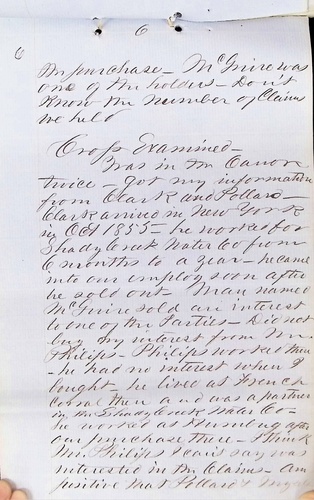 6
6
the purchase - McGuire was
one of the holders - Don't
Know the number of Claims
we held
Cross Examined -
Was in the Canon
twice - Got my information
from Clark and Pollard -
Clark arrived in New York
in Oct 1855 - he worked for
Shady Creek Water Co from
6 months to a year - he came
into our employ soon after
he sold out - Man named
McGuire sold an interest
to one of the Parties - Did not
buy my interest from Mr.
Philips - Philips worked there
- he had no interest when I
bought - he lived at French
Corral then and was a partner
in the Shady Creek Water Co -
he worked at Plumbug after
our purchase there - I think
Mr. Philips I can't say was
interested in the Claims - Am
positive that Pollard &